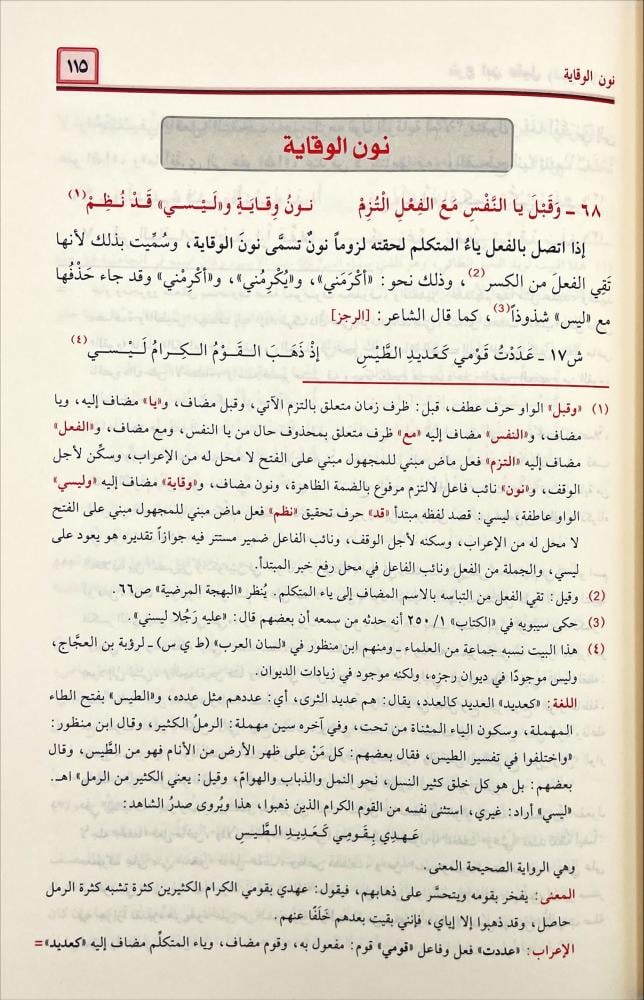 نون الوقاية
١١٥
نون الوقاية
٦٨ ـ وَقَبْلَ يا النَّفْسِ مَعَ الفِعْلِ التُزِمْ نونُ وِقايَةٍ و«لَيْسي» قَدْ نُظِمْ(١)
إذا اتصل بالفعل ياءُ المتكلم لحقته لزوماً نونٌ تسمَّى نونَ الوقاية، وسُمِّيت بذلك لأنها
تَقِي الفعلَ من الكسر(2)، وذلك نحو: «أكْرَمَني»، و«يُكْرِمُني»، و«أكْرِمْني» وقد جاء حَذْفُها
مع «ليس» شذوذاً(3)، كما قال الشاعر: [الرجز]
ش١٧ ـ عَدَدْتُ قَوْمي كَعَديدِ الطَّيْسِ إذْ ذَهَبَ القَوْمُ الكِرامُ لَيْسي(٤)
(١) «وقبل» الواو حرف عطف، قبل: ظرف زمان متعلق بالتزم الآتي، وقبل مضاف، و«يا» مضاف إليه، ويا
مضاف، و«النفس» مضاف إليه «مع» ظرف متعلق بمحذوف حال من يا النفس، ومع مضاف، و«الفعل»
مضاف إليه «التزم» فعل ماض مبني للمجهول مبني على الفتح لا محل له من الإعراب، وسكِّن لأجل
الوقف، و«نون» نائب فاعل لالتزم مرفوع بالضمة الظاهرة، ونون مضاف، و«وقاية» مضاف إليه «وليسي»
الواو عاطفة، ليسي: قصد لفظه مبتدأ «قد» حرف تحقيق «نظم» فعل ماض مبني للمجهول مبني على الفتح
لا محل له من الإعراب، وسكنه لأجل الوقف، ونائب الفاعل ضمير مستتر فيه جوازاً تقديره هو يعود على
ليسي، والجملة من الفعل ونائب الفاعل في محل رفع خبر المبتدأ.
(2) وقيل: تقي الفعل من التباسِه بالاسم المضاف إلى ياء المتكلم. يُنظر «البهجة المرضية» ص٦٦.
(3) حكى سيبويه في «الكتاب» ١/ ٢٥٠ أنه حدثه من سمعه أن بعضهم قال: «عليه رَجُلا ليسني».
(٤) هذا البيت نسبه جماعة من العلماء ـ ومنهم ابن منظور في «لسان العرب» (ط ي س) ـ لرؤبة بن العجَّاج،
وليس موجودًا في ديوان رجزه، ولكنه موجود في زيادات الديوان.
اللغة: «كعديد» العديد كالعدد، يقال: هم عديد الثرى، أي: عددهم مثل عدده، و«الطيس» بفتح الطاء
المهملة، وسكون الياء المثناة من تحت، وفي آخره سين مهملة: الرملُ الكثير، وقال ابن منظور:
«واختلفوا في تفسير الطيس، فقال بعضهم: كل مَنْ على ظهر الأرض من الأنام فهو من الطَّيس، وقال
بعضهم: بل هو كل خلق كثير النسل، نحو النمل والذباب والهوامّ، وقيل: يعني الكثير من الرمل» اهـ.
«ليسي» أراد: غيري، استثنى نفسه من القوم الكرام الذين ذهبوا، هذا ويُروى صدرُ الشاهد:
عَهْدِي بِقَوْمِي كَعَدِيدِ الطَّيْسِ
وهي الرواية الصحيحة المعنى.
المعنى: يفخر بقومه ويتحسَّر على ذهابهم، فيقول: عهدي بقومي الكرام الكثيرين كثرة تشبه كثرة الرمل
حاصل، وقد ذهبوا إلا إياي، فإنني بقيت بعدهم خَلَفًا عنهم.
الإعراب: «عددت» فعل وفاعل «قومي» قوم: مفعول به، وقوم مضاف، وياء المتكلِّم مضاف إليه «كعديد»=